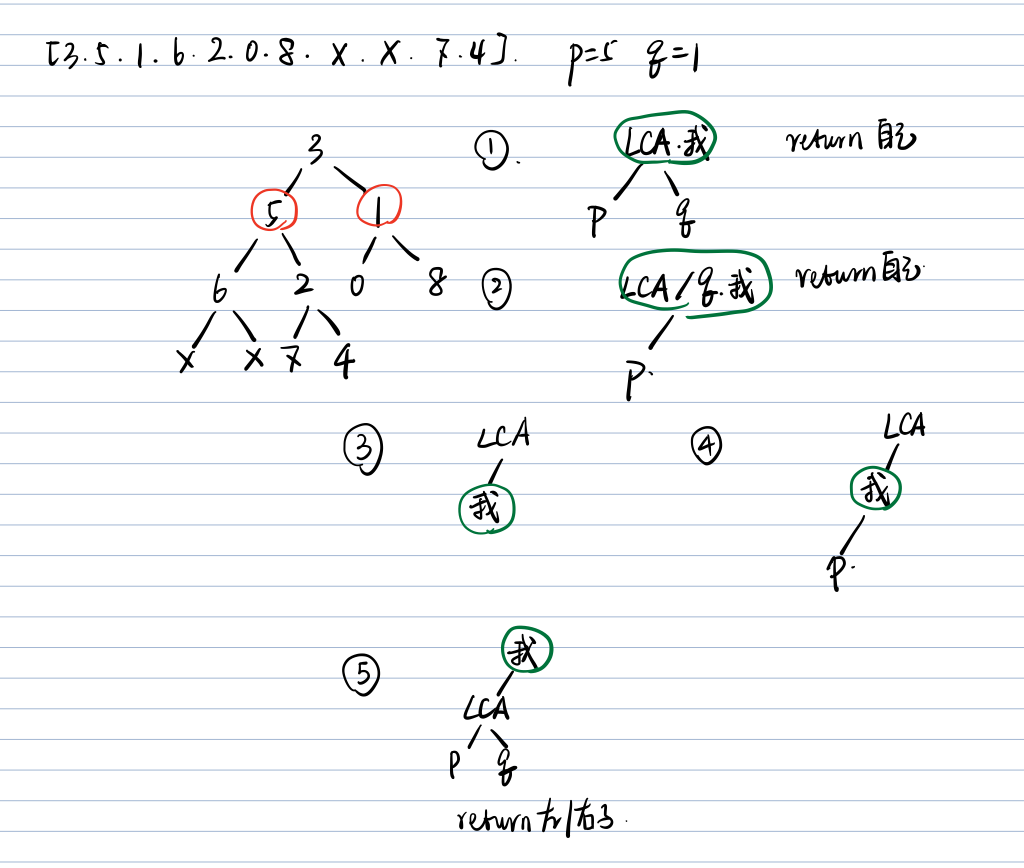 [3.5.1.6.2.0.8.X.X.7.4]. p=5 q=1
3
5 1
6 2 0 8
X X 7 4
①. LCA.我 return 自己
p q
② LCA/q.我 return自己.
p.
③ LCA
我
④ LCA
我
p.
⑤ 我
LCA
p q
return左/右子.